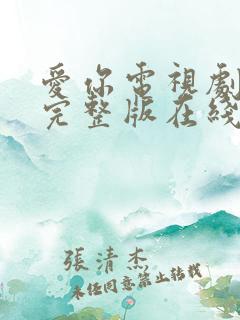 愛你電視劇
完整版在綫
張清杰
未经同意禁止转载